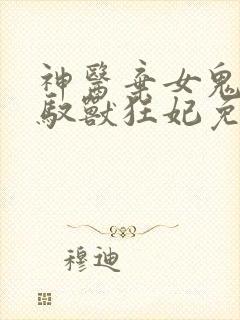 神醫棄女鬼
馭獸狂妃免
穆迪